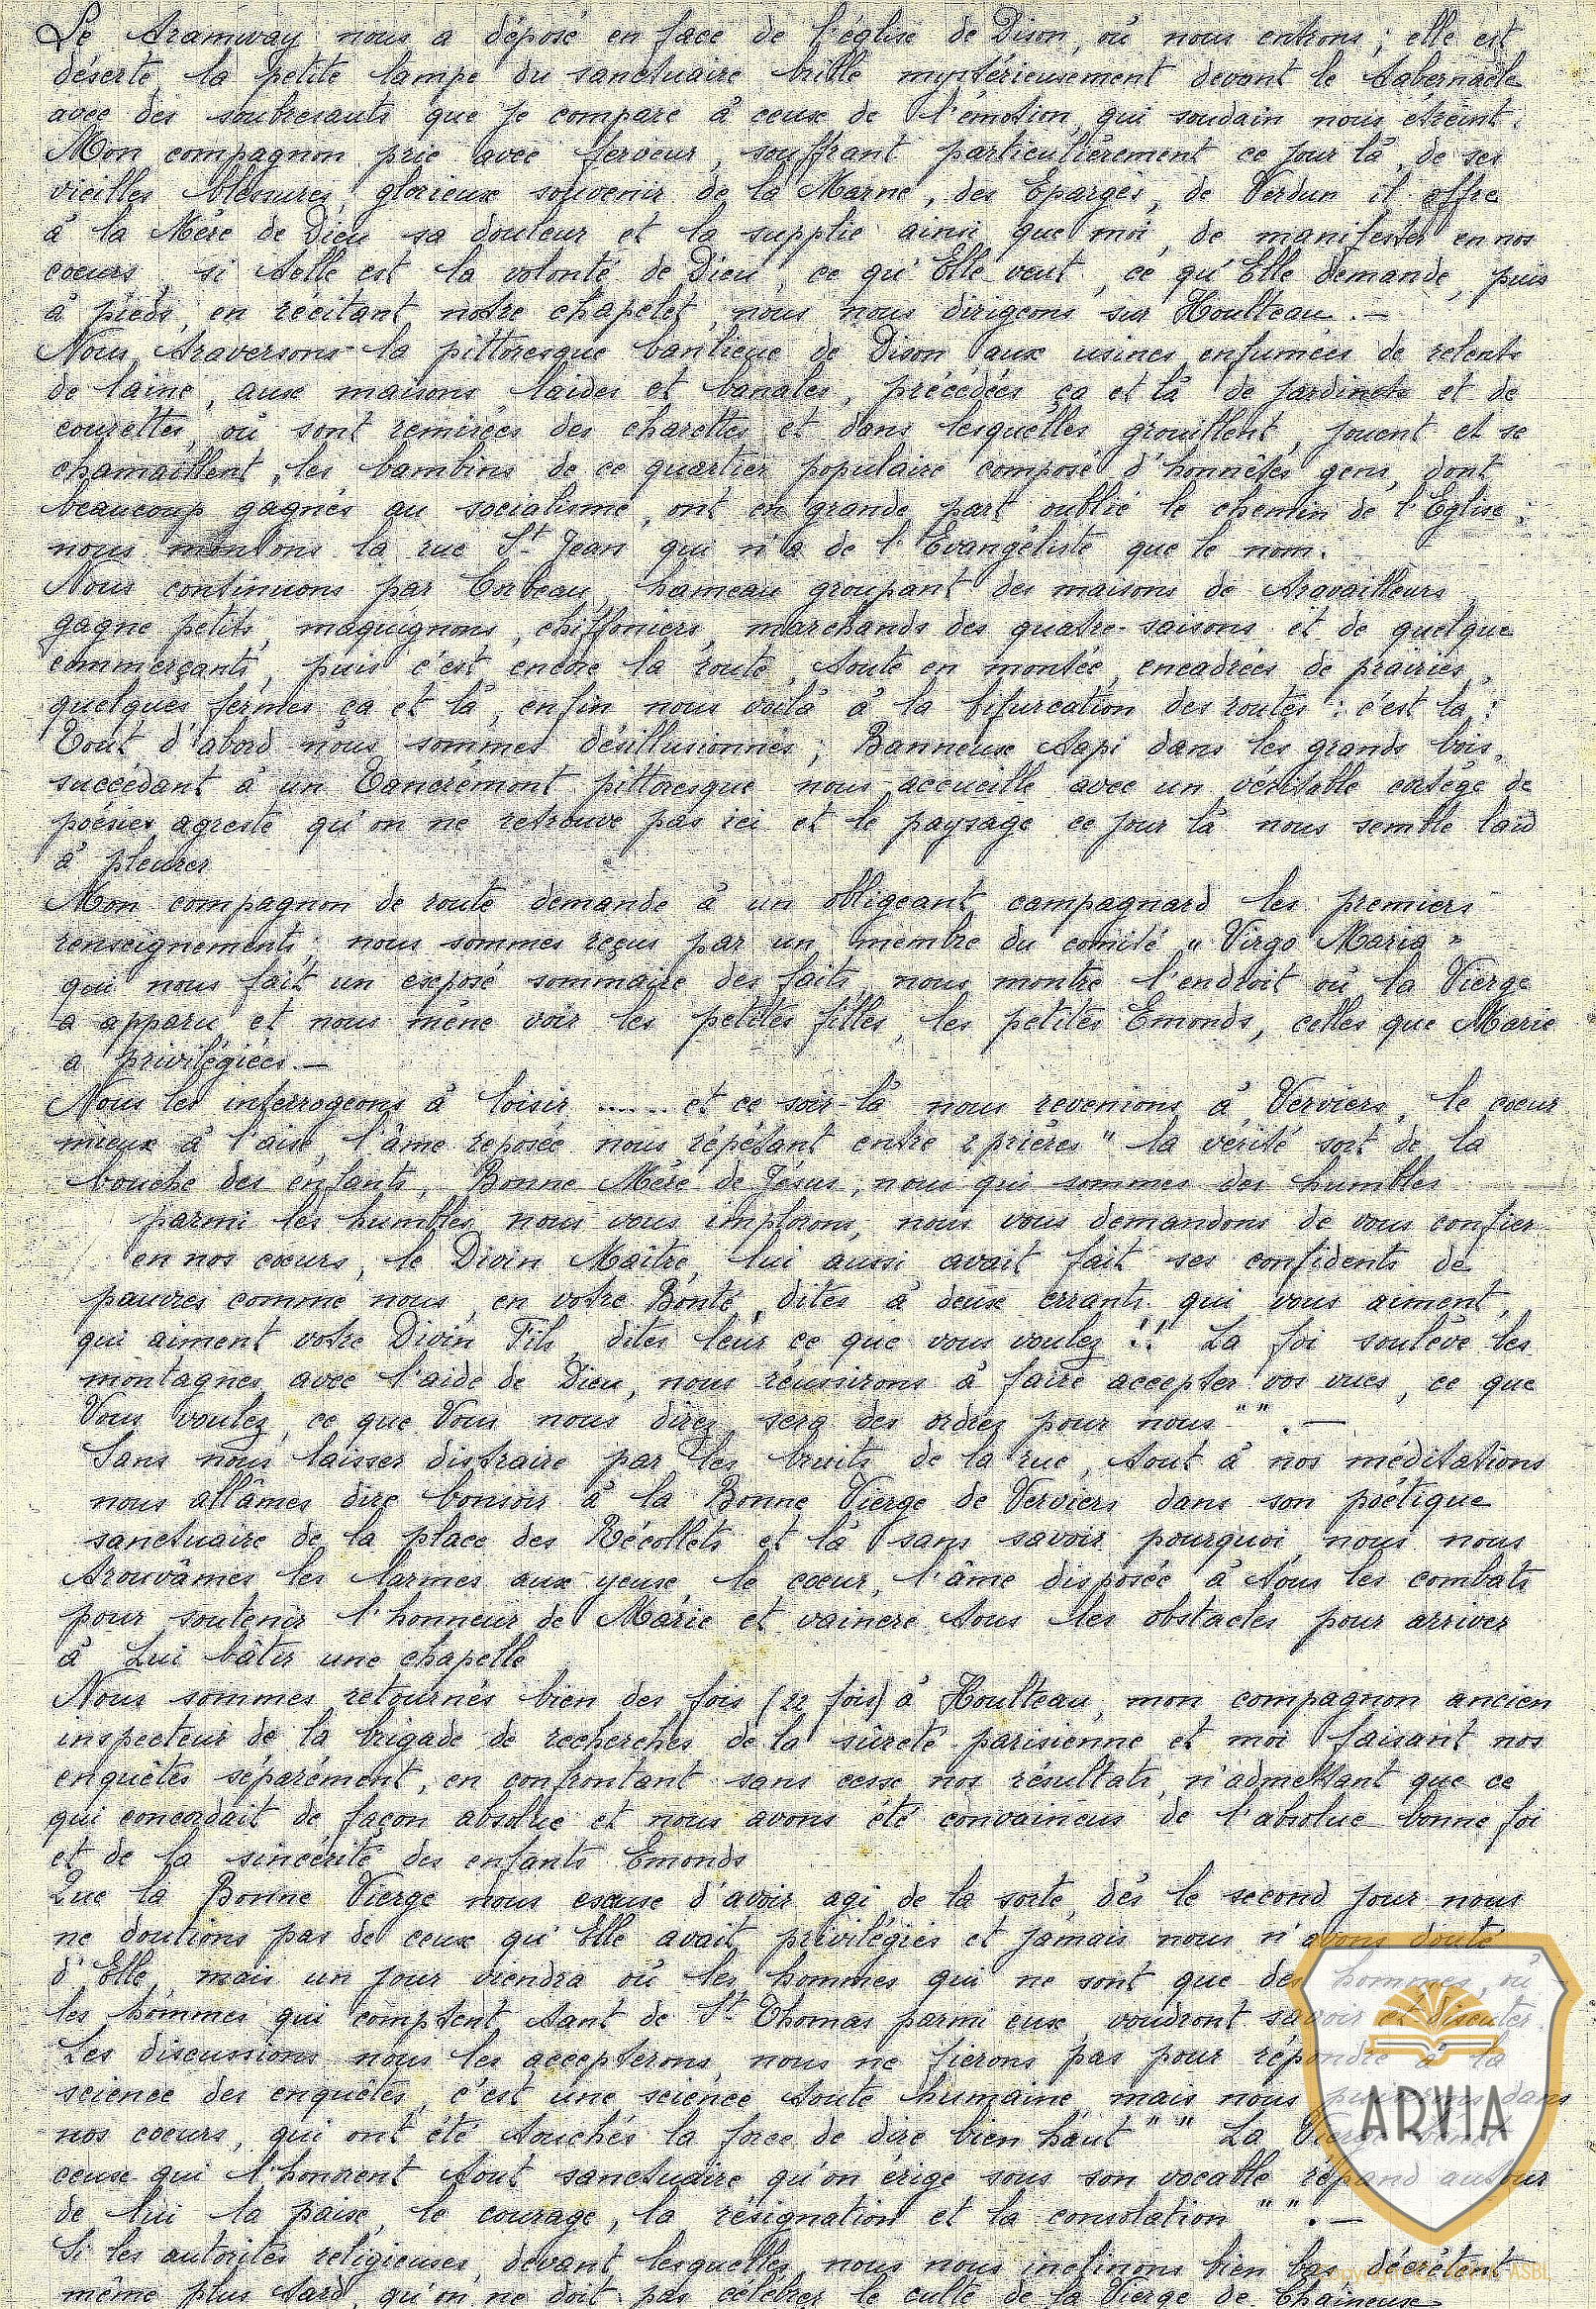 Le tramway nous a déposé en face de l'église de Dison, où nous entrons ; elle est
déserte, la petite lampe du sanctuaire brille mystérieusement devant le tabernacle
avec des soubresauts que je compare à ceux de l'émotion qui soudain nous étreint.
Mon compagnon prie avec ferveur, souffrant particulièrement ce jour là, de ses
vieilles blessures, glorieux souvenir de la Marne, des Eparges, de Verdun il offre
à la Mère de Dieu sa douleur et la supplie ainsi que moi, de manifester en nos
coeurs, si telle est la volonté de Dieu, ce qu'Elle veut, ce qu'Elle demande, puis
à pieds, en récitant notre chapelet, nous nous dirigeons sur Houlteau.—
Nous traversons la pittoresque banlieue de Dison aux usines enfumées de relents
de laine, aux maisons laides et banales, précédées ça et là de jardinets et de
courettes, où sont remisées des charettes et dans lesquelles grouillent, jouent et se
chamaillent, les bambins de ce quartier populaire composé d'honnêtes gens, dont
beaucoup gagnés au socialisme, ont en grande part oublié le chemin de l'Eglise ;
nous montons la rue St Jean qui n'a de l'Evangéliste que le nom.
Nous continuons par Corbeau, hameau groupant des maisons de travailleurs,
gagne petits, maquignons, chiffoniers, marchands des quatre-saisons et de quelque
commerçants, puis c'est encore la route, toute en montée, encadrées de prairies,
quelques fermes ça et là, enfin nous voilà à la bifurcation des routes : c'est là !
Tout d'abord nous sommes désillusionnés ; Banneux tapi dans les grands bois,
succédant à un Tancrémont pittoresque nous accueille avec un véritable cortège de
poésies agreste qu'on ne retrouve pas ici et le paysage ce jour là nous semble laid
à pleurer
Mon compagnon de route demande à un obligeant campagnard les premiers
renseignements ; nous sommes reçus par un membre du comité " Virgo Maria "
qui nous fait un exposé sommaire des faits, nous montre l'endroit où la Vierge
a apparu et nous mène voir les petites filles, les petites Emonds, celles que Marie
a privilégiées.—
Nous les interrogeons à loisir ...... et ce soir-là nous revenions à Verviers, le coeur
mieux à l'aise, l'âme reposée nous répétant entre 2 prières " la vérité sort de la
bouche des enfants, Bonne Mère de Jésus, nous qui sommes des humbles
parmi les humbles nous vous implorons, nous vous demandons de vous confier
en nos coeurs, le Divin Maitre, lui aussi avait fait ses confidents de
pauvres comme nous, en votre Bonté, dites à deux errants qui vous aiment,
qui aiment votre Divin Fils, dites leur ce que vous voulez !! La foi soulève les
montagnes, avec l'aide de Dieu, nous réussirons à faire accepter vos vues, ce que
Vous voulez, ce que Vous nous direz sera des ordres pour nous "" .—
Sans nous laisser distraire par les bruits de la rue, tout à nos méditations
nous allâmes dire bonsoir à la Bonne Vierge de Verviers dans son poétique
sanctuaire de la place des Récollets et là sans savoir pourquoi nous nous
trouvâmes les larmes aux yeux, le coeur, l'âme disposée à tous les combats
pour soutenir l'honneur de Marie et vaincre tous les obstacles pour arriver
à Lui bâtir une chapelle
Nous sommes retournés bien des fois (22 fois) à Houlteau, mon compagnon ancien
inspecteur de la brigade de recherches de la sûreté parisienne et moi faisant nos
enquêtes séparément, en confrontant sans cesse nos résultats, n'admettant que ce
qui concordait de façon absolue et nous avons été convaincus de l'absolue bonne foi
et de la sincérité des enfants Emonds
Que la Bonne Vierge nous excuse d'avoir agi de la sorte, dès le second jour nous
ne doutions pas de ceux qu'Elle avait privilégiés et jamais nous n'avons douté
d'Elle, mais un jour viendra où les hommes qui ne sont que des hommes, où
les hommes qui comptent tant de St Thomas parmi eux, voudront savoir et discuter.
Les discussions nous les accepterons, nous ne fierons pas pour répondre à la
science des enquêtes, c'est une science toute humaine, mais nous puiserons dans
nos coeurs, qui ont été touchés la force de dire bien haut "" La Vierge bénit
ceux qui l'honorent tout sanctuaire qu'on érige sous son vocable répand autour
de lui la paix, le courage, la résignation et la consolation "" .—
Si les autorités religieuses, devant lesquelles nous nous inclinons bien bas décrétent
même plus tard, qu'on ne doit pas célébrer le culte de la Vierge de Chaineux
ARVIA